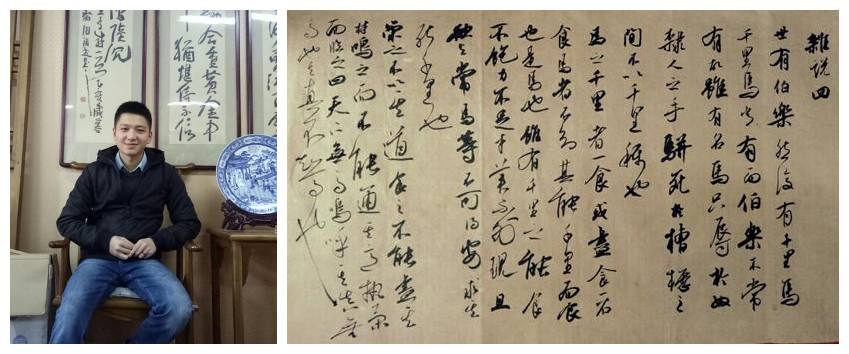 雜說四
世有伯樂然後有千里馬
千里馬常有而伯樂不常
有故雖有名馬只辱於奴
隸人之手駢死於槽櫪之
間不以千里稱也
馬之千里者一食或盡食石
食馬者不知其能千里而食
也是馬也雖有千里之能食
不飽力不足才美不外現且
欲與常馬等不可得安求其
能千里也
策之不以其道食之不能盡其
材鳴之而不能通其意執策
而臨之曰天下無馬嗚呼其真無
馬也其真不知馬也